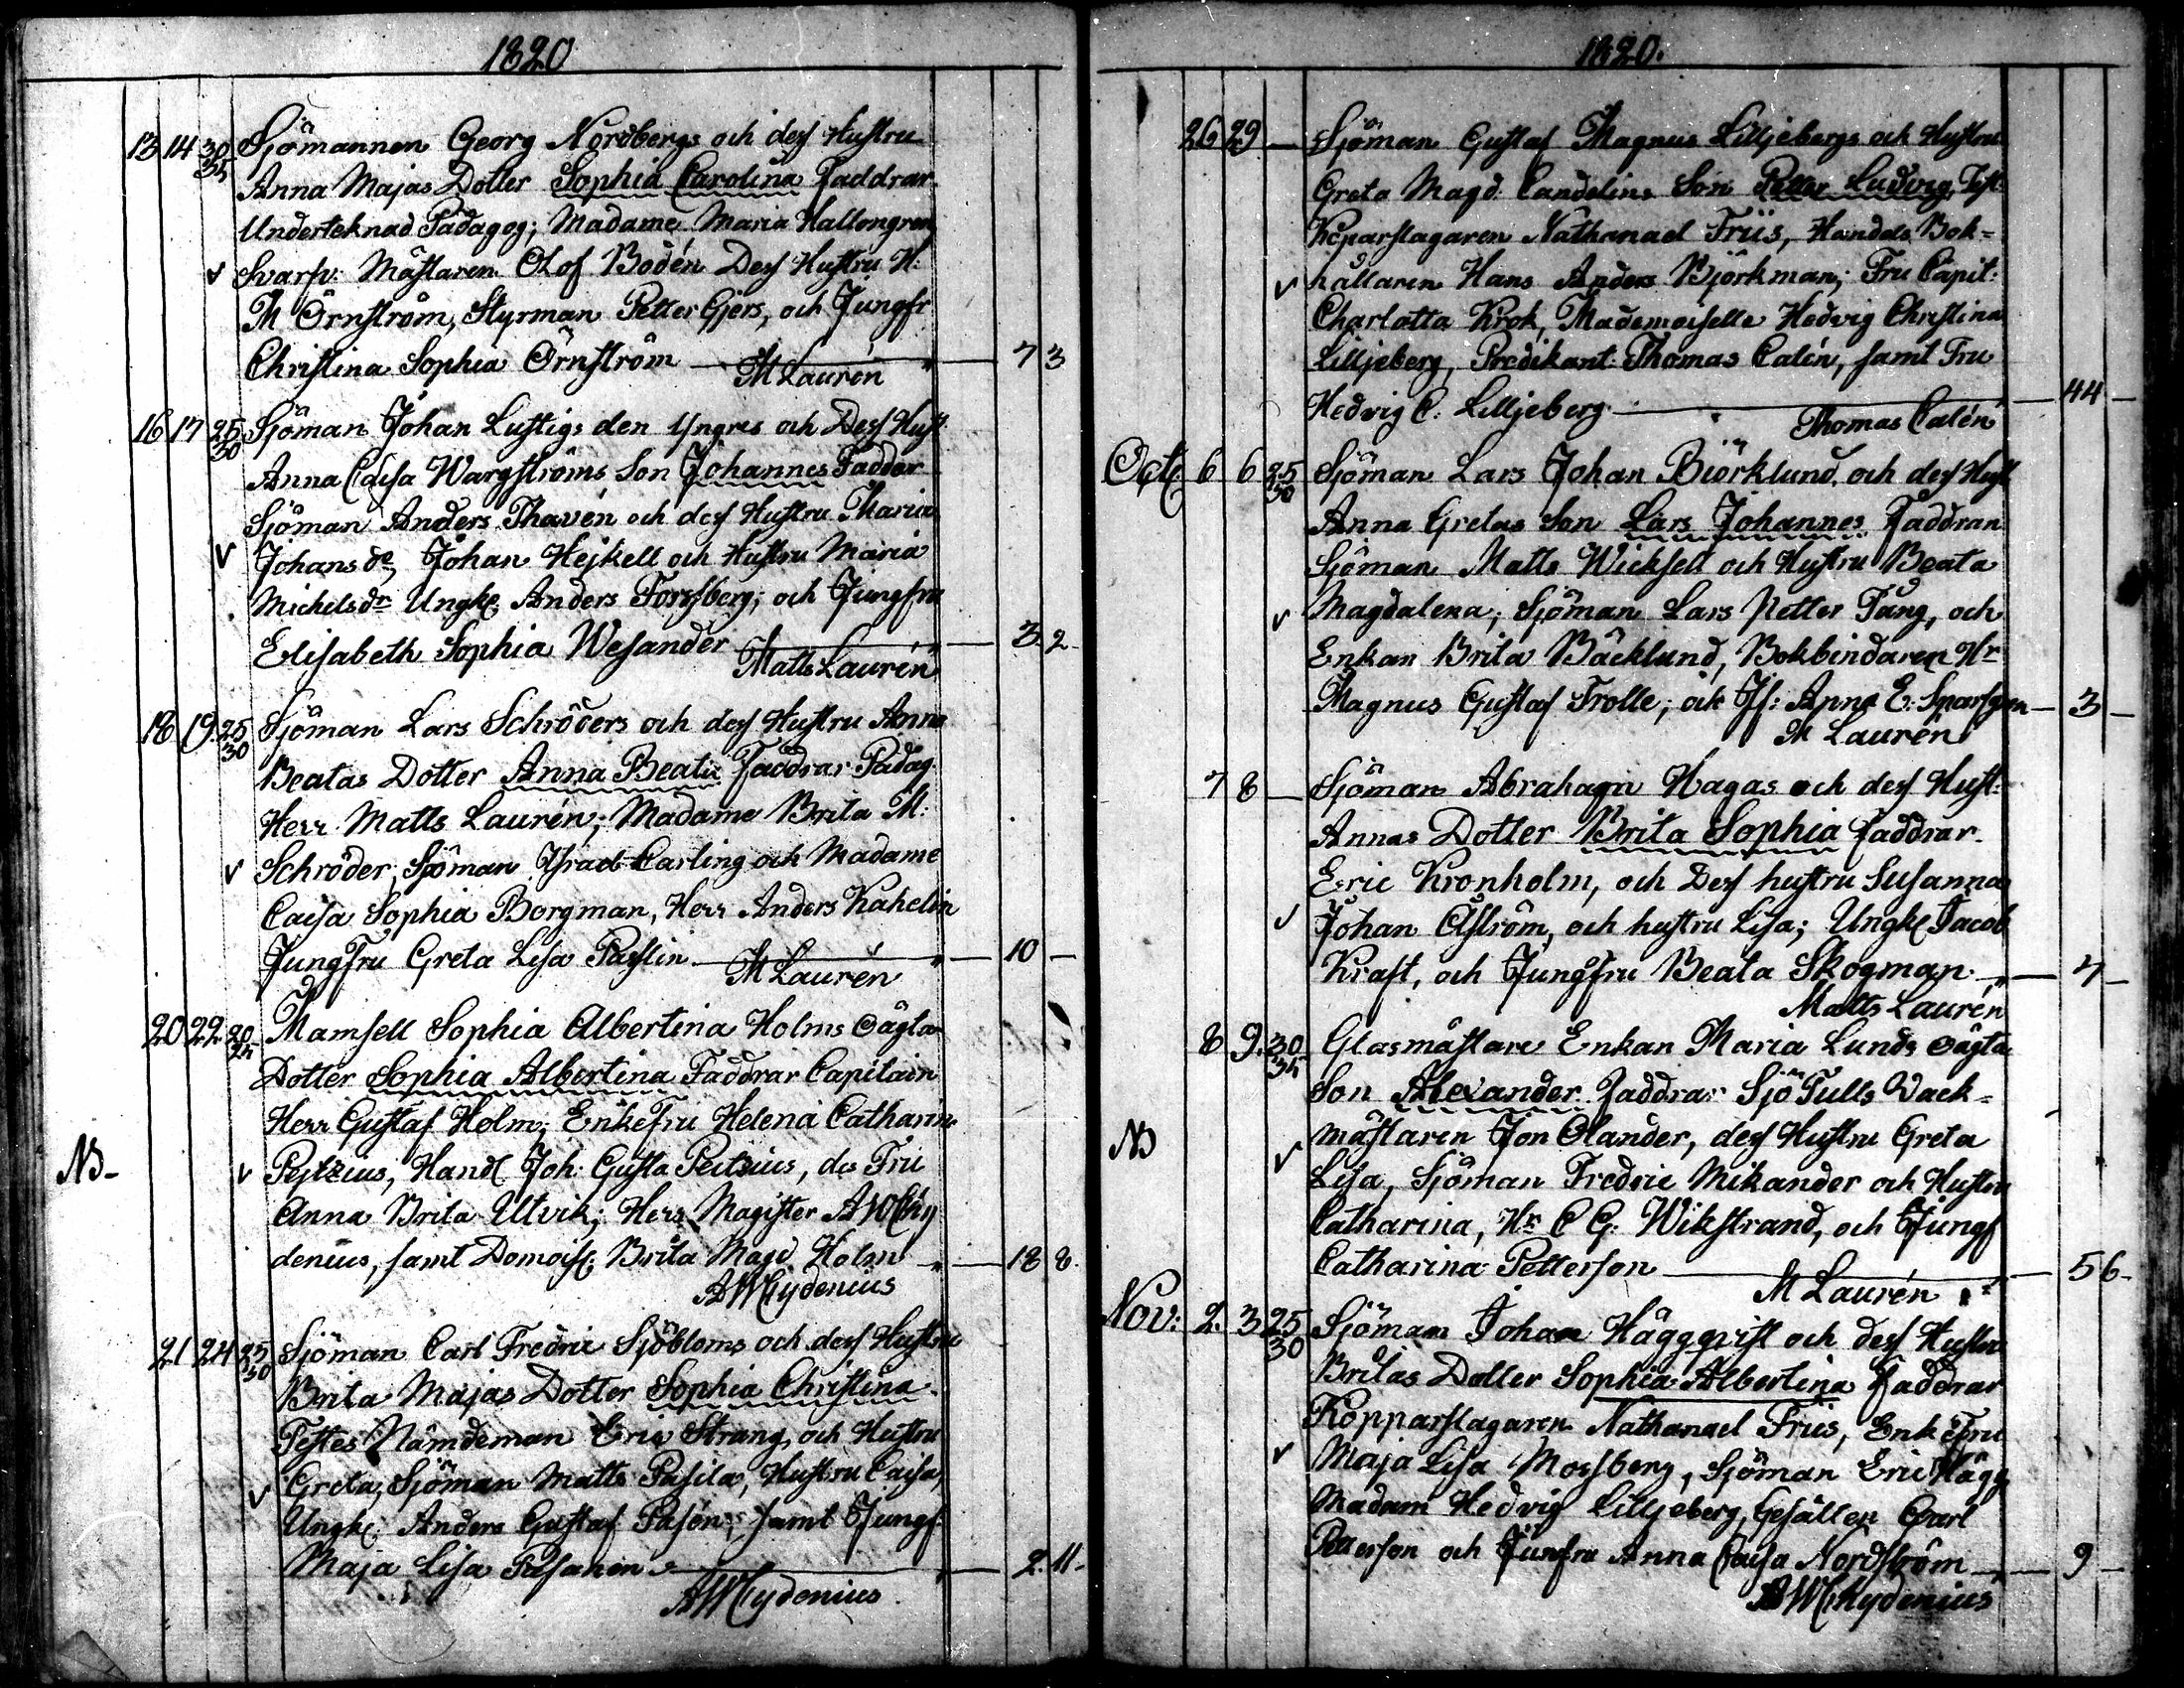 1820
13 14 30 35 Sjömannen Georg Nordbergs och dess Hustru
Anna Majas Dotter Sophia Carolina Faddrar
Underteknad Pädagog; Madame Maria Hallongren
Svarfv: Mästaren Olof Bodén Dess Hustru H:
M Örnström, Styrman Petter Gjers, och Jungfr
Christina Sophia Örnström 7 3
M Laurén
16 17 25 30 Sjöman Johan Lustigs den Yngres och Dess Hust
Anna Cajsa Wargströms Son Johannes Faddar
Sjöman Anders Thavén och dess Hustru Maria
Johansdr, Johan Hejkell och Hustru Maria
Michelsdr Ungk: Anders Forssberg; och Jungfru
Elisabeth Sophia Wesander 3. 2
Matts Laurén
18 19. 25 30 Sjöman Lars Schröders och dess Hustru Anna
Beatas Dotter Anna Beata Faddrar Pädag
Herr Matts Laurén; Madame Brita M:
Schröder, Sjöman Israel Carling och Madame
Caisa Sophia Borgman, Herr Anders Kahelin
Jungfru Greta Lisa Passlin 10
M Laurén
20 22 20 24 Mamsell Sophia Albertina Holms oägta
Dotter Sophia Albertina Faddrar Capitain
Herr Gustaf Holm; Enkefru Helena Catharina
NB Peitzius, Handl Joh: Gusta Peitzius, des Fru
Anna Brita Utvik; Herr Magister A W Chy
denius, samt Domois: Brita Magd Holm 18 8.
AWChydenius
21 24 25 30 Sjöman Carl Fredric Sjöbloms och dess Hustru
Brita Majas Dotter Sophia Christina
Testes Nämdeman Eric Strang, och Hustru
Greta; Sjöman Matts Pasila, Hustru Caisa,
Ungk: Anders Gustaf Pasén; samt Jungf:
Maja Lisa Pasanen 2. 11
AWChydenius
1820.
26 29 Sjöman Gustaf Magnus Liljebergs och Hustru
Greta Magd. Candelins Son Petter Ludvig, Test:
Koparslagaren Nathanael Friis, Handels Bok=
hållaren Hans Anders Björkman; Fru Capit:
Charlatta Krok, Mademoiselle Hedvig Christina
Lilljeberg, Predikant Thomas Calén, samt Fru
Hedvig C. Lilljeberg 44
Thomas Calén
Octo 6 6 25 30 Sjöman Lars Johan Biörklund och dess Hust
Anna Gretas Son Lars Johannes Faddran
Sjöman Matts Wicksell och Hustru Beata
Magdalena; Sjöman Lars Petter Tång, och
Enkan Brita Bäcklund, Bokbindaren Hr
Magnus Gustaf Trolle; och Jf: Anna E. 3
M Laurén
7 8 Sjöman Abraham Hagas och dess Hust:
Annas Dotter Brita Sophia Faddrar
Eric Kronholm, och Dess hustru Susanna
Johan Åström, och hustru Lisa; Ungk Jacob
Kraft, och Jungfru Beata Skogman 7
Matts Laurén
8 9. 30 35 Glasmästare Enkan Maria Lunds oägta
Son Alexander Faddrar Sjö Tulls Vack=
NB mästaren Jon Olander, dess Hustru Greta
Lisa, Sjöman Fredric Mikander och Hustru
Catharina, Hr C G: Wikstrand, och Jungf
Catharina Petterson 56
M Laurén
Nov: 2. 3 25 30 Sjöman Johan Häggqvist och dess Hustru
Britas Dotter Sophia Albertina Faddrar
Kopparslagaren Nathanael Friis, Enkefru
Maja Lisa Mossberg, Sjöman Eric Hägg
Madam Hedvig Lilljeberg, Gesällen Carl
Petterson och Junfru Anna Caisa Nordström 9
AWChydenius